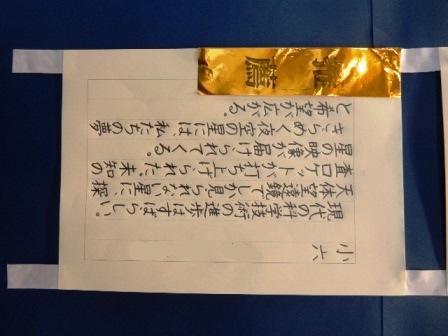 推薦
小六
現代の科学技術の進歩はすばらしい。
天体望遠鏡でしか見られない星に、探
査ロケットが打ち上げられた未知の
星の映像が届けられてくる。
きらめく夜空の星には、私たちの夢
と希望が広がる。